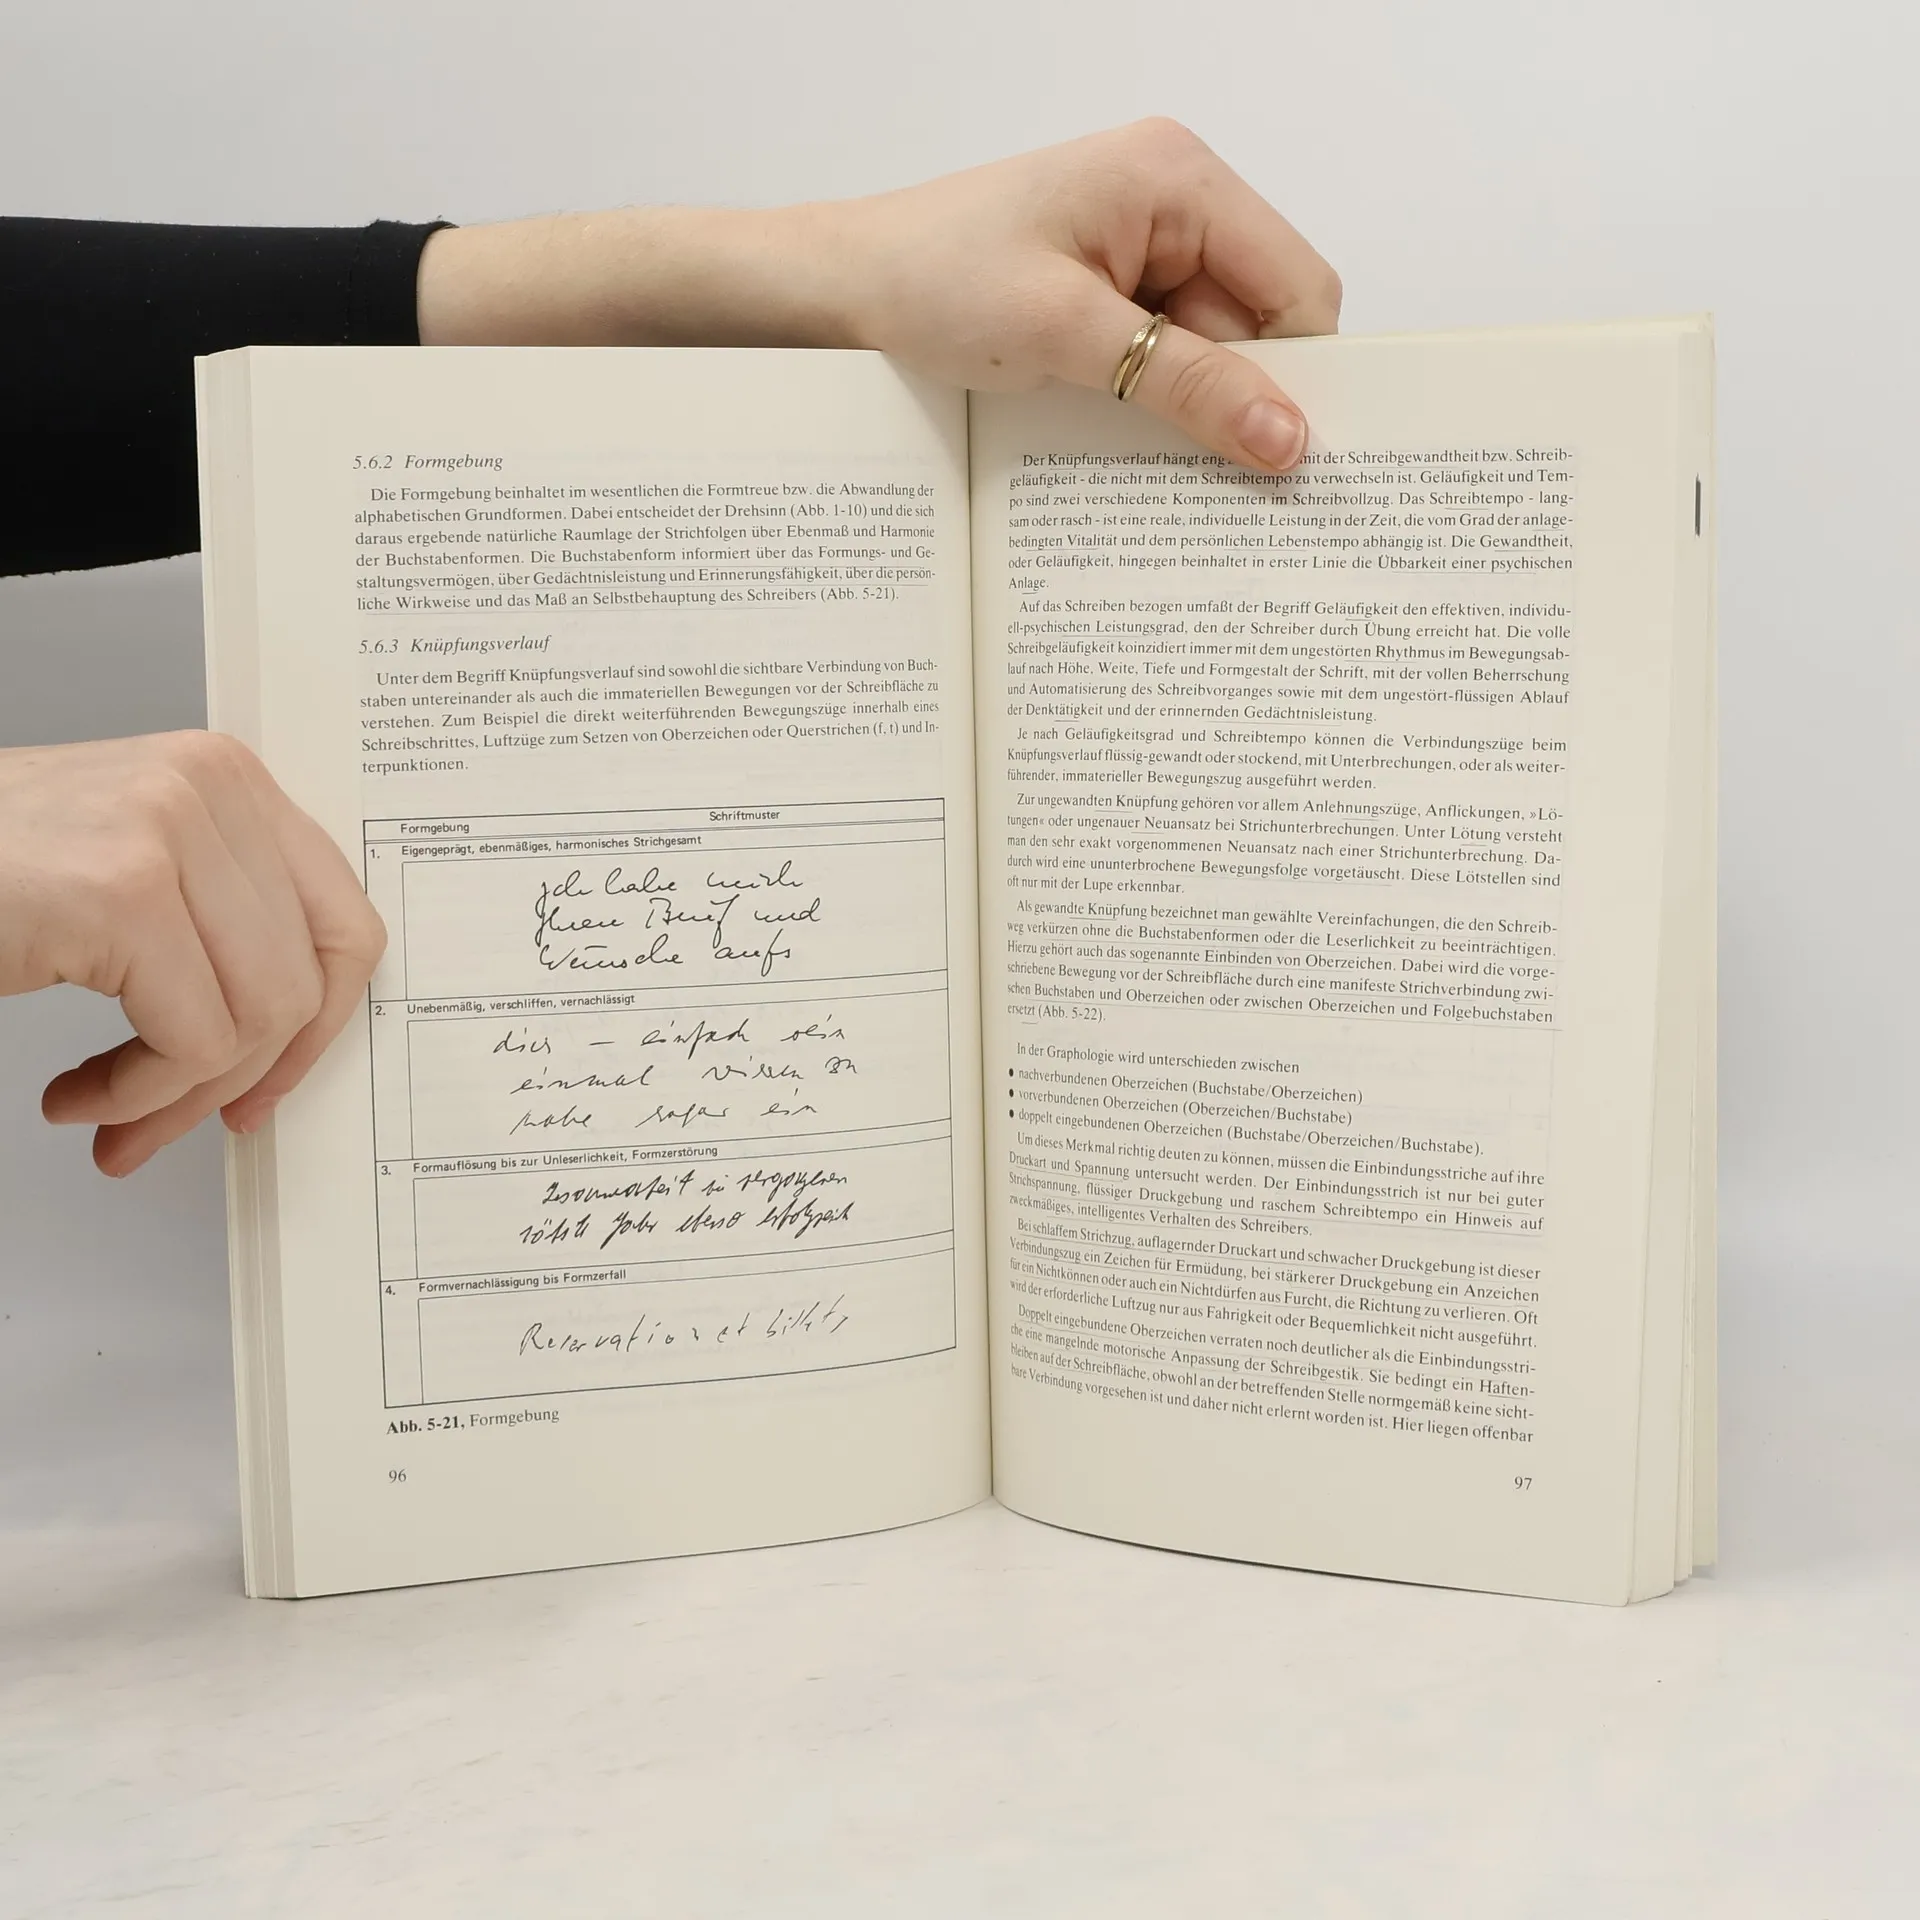 5.6.2 Formgebung
Die Formgebung beinhaltet im wesentlichen die Formtreue bzw. die Abwandlung der
alphabetischen Grundformen. Dabei entscheidet der Drehsinn (Abb. 1-10) und die sich
daraus ergebende natürliche Raumlage der Strichfolgen über Ebenmaß und Harmonie
der Buchstabenformen. Die Buchstabenform informiert über das Formungs- und Ge-
staltungsvermögen, über Gedächtnisleistung und Erinnerungsfähigkeit, über die persön-
liche Wirkweise und das Maß an Selbstbehauptung des Schreibers (Abb. 5-21).
5.6.3 Knüpfungsverlauf
Unter dem Begriff Knüpfungsverlauf sind sowohl die sichtbare Verbindung von Buch-
staben untereinander als auch die immateriellen Bewegungen vor der Schreibfläche zu
verstehen. Zum Beispiel die direkt weiterführenden Bewegungszüge innerhalb eines
Schreibschrittes, Luftzüge zum Setzen von Oberzeichen oder Querstrichen (f, t) und In-
terpunktionen.
Formgebung Schriftmuster
1. Eigengeprägt, ebenmäßiges, harmonisches Strichgesamt
Ich habe mich
Ihren Beruf und
Wünsche aufs
2. Unebenmäßig, verschliffen, vernachlässigt
dies – einfach sein
einmal wissen zu
habe sogar ein
3. Formauflösung bis zur Unleserlichkeit, Formzerstörung
Zusammenarbeit im vergangenen
Jahr ebenso erfolgreich
4. Formvernachlässigung bis Formzerfall
Reservation et billets
Abb. 5-21, Formgebung
96
Der Knüpfungsverlauf hängt eng mit der Schreibgewandtheit bzw. Schreib-
geläufigkeit - die nicht mit dem Schreibtempo zu verwechseln ist. Geläufigkeit und Tem-
po sind zwei verschiedene Komponenten im Schreibvollzug. Das Schreibtempo - lang-
sam oder rasch - ist eine reale, individuelle Leistung in der Zeit, die vom Grad der anlage-
bedingten Vitalität und dem persönlichen Lebenstempo abhängig ist. Die Gewandtheit,
oder Geläufigkeit, hingegen beinhaltet in erster Linie die Übbarkeit einer psychischen
Anlage.
Auf das Schreiben bezogen umfaßt der Begriff Geläufigkeit den effektiven, individu-
ell-psychischen Leistungsgrad, den der Schreiber durch Übung erreicht hat. Die volle
Schreibgeläufigkeit koinzidiert immer mit dem ungestörten Rhythmus im Bewegungsab-
lauf nach Höhe, Weite, Tiefe und Formgestalt der Schrift, mit der vollen Beherrschung
und Automatisierung des Schreibvorganges sowie mit dem ungestört-flüssigen Ablauf
der Denktätigkeit und der erinnernden Gedächtnisleistung.
Je nach Geläufigkeitsgrad und Schreibtempo können die Verbindungszüge beim
Knüpfungsverlauf flüssig-gewandt oder stockend, mit Unterbrechungen, oder als weiter-
führender, immaterieller Bewegungszug ausgeführt werden.
Zur ungewandten Knüpfung gehören vor allem Anlehnungszüge, Anflickungen, »Lö-
tungen« oder ungenauer Neuansatz bei Strichunterbrechungen. Unter Lötung versteht
man den sehr exakt vorgenommenen Neuansatz nach einer Strichunterbrechung. Da-
durch wird eine ununterbrochene Bewegungsfolge vorgetäuscht. Diese Lötstellen sind
oft nur mit der Lupe erkennbar.
Als gewandte Knüpfung bezeichnet man gewählte Vereinfachungen, die den Schreib-
weg verkürzen ohne die Buchstabenformen oder die Leserlichkeit zu beeinträchtigen.
Hierzu gehört auch das sogenannte Einbinden von Oberzeichen. Dabei wird die vorge-
schriebene Bewegung vor der Schreibfläche durch eine manifeste Strichverbindung zwi-
schen Buchstaben und Oberzeichen oder zwischen Oberzeichen und Folgebuchstaben
ersetzt (Abb. 5-22).
In der Graphologie wird unterschieden zwischen
• nachverbundenen Oberzeichen (Buchstabe/Oberzeichen)
• vorverbundenen Oberzeichen (Oberzeichen/Buchstabe)
• doppelt eingebundenen Oberzeichen (Buchstabe/Oberzeichen/Buchstabe).
Um dieses Merkmal richtig deuten zu können, müssen die Einbindungsstriche auf ihre
Druckart und Spannung untersucht werden. Der Einbindungsstrich ist nur bei guter
Strichspannung, flüssiger Druckgebung und raschem Schreibtempo ein Hinweis auf
zweckmäßiges, intelligentes Verhalten des Schreibers.
Bei schlaffem Strichzug, auflagernder Druckart und schwacher Druckgebung ist dieser
Verbindungszug ein Zeichen für Ermüdung, bei stärkerer Druckgebung ein Anzeichen
für ein Nichtkönnen oder auch ein Nichtdürfen aus Furcht, die Richtung zu verlieren. Oft
wird der erforderliche Luftzug nur aus Fahrigkeit oder Bequemlichkeit nicht ausgeführt.
Doppelt eingebundene Oberzeichen verraten noch deutlicher als die Einbindungsstri-
che eine mangelnde motorische Anpassung der Schreibgestik. Sie bedingt ein Haften-
bleiben auf der Schreibfläche, obwohl an der betreffenden Stelle normgemäß keine sicht-
bare Verbindung vorgesehen ist und daher nicht erlernt worden ist. Hier liegen offenbar
97